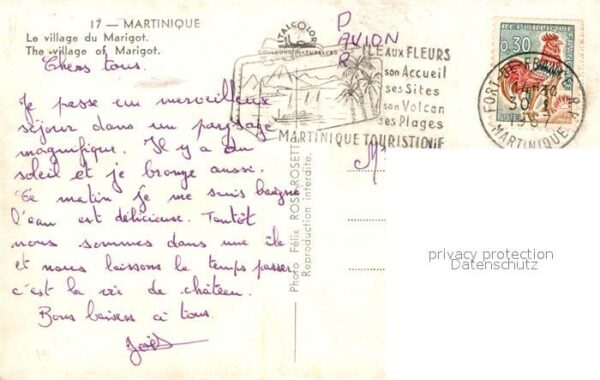 17 — MARTINIQUE
Le village du Marigot.
The village of Marigot.
Chers tous.
Je passe un merveilleux
séjour dans un paysage
magnifique. Il y a du
soleil et je bronze aussi.
Ce matin je me suis baigné
l'eau est délicieuse. Tantôt
nous sommes dans une île
et nous laissons le temps passer
c'est la vie de château.
Bons baisers à tous.
Joël
ITALCOLOR
COULEURS NATURELLES
Photo Félix ROSE-ROSETTE
Reproduction interdite.
PAR
AVION
ILE AUX FLEURS
son Accueil
ses Sites
son Volcan
ses Plages
MARTINIQUE TOURISTIQUE
REPUBLIQUE
0,30
FORT-DE-FRANCE R.P.
30-1
1967
MARTINIQUE
M
privacy protection
Datenschutz